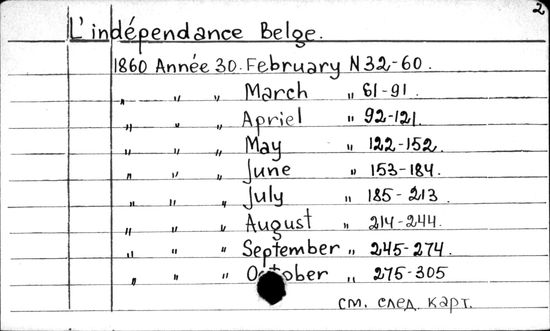 2
L'indépendance Belge.
1860 Année 30. February N 32-60.
„ „ „ March „ 61-91.
„ „ „ Apriel „ 92-121.
„ „ „ May „ 122-152.
„ „ „ June „ 153-184.
„ „ „ July „ 185-213
„ „ „ August „ 214-244.
„ „ „ September „ 245-274.
„ „ „ October „ 275-305
см. след. карт.